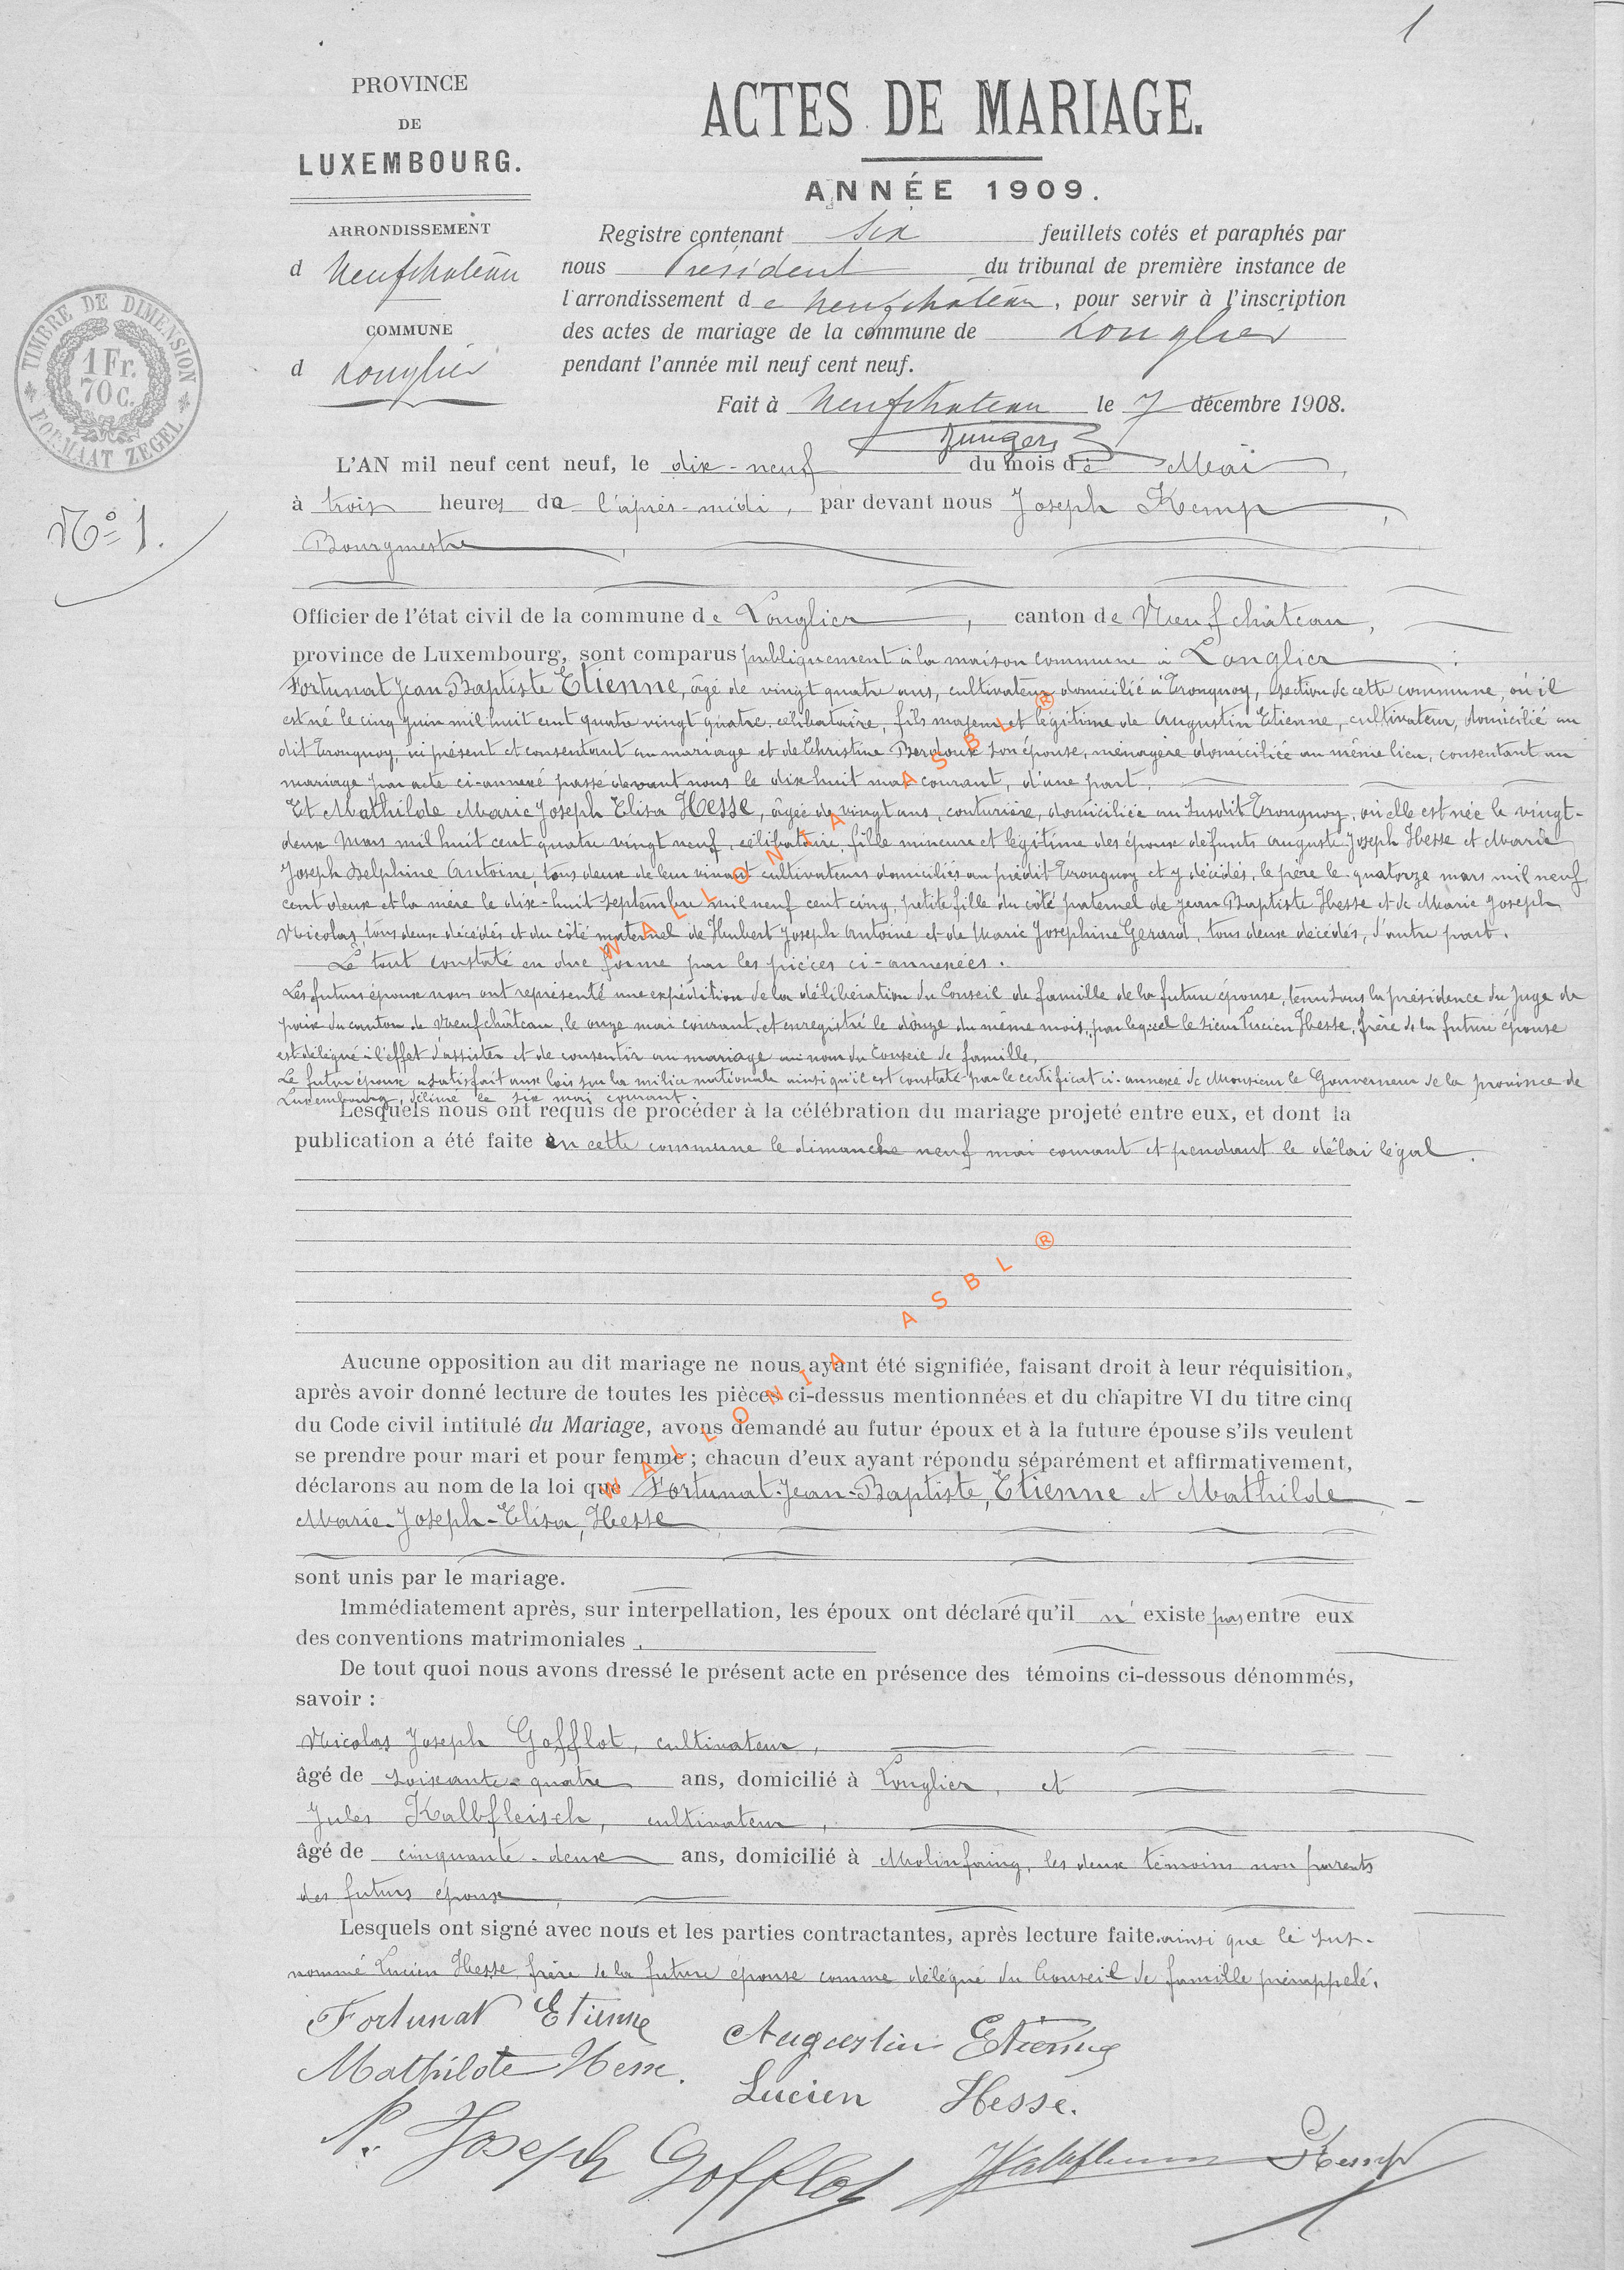 1
PROVINCE
DE
LUXEMBOURG.
ARRONDISSEMENT
d Neufchateau
COMMUNE
d Longlier
TIMBRE DE DIMENSION
1 Fr.
70 C.
FORMAAT ZEGEL
ACTES DE MARIAGE.
ANNÉE 1909.
Registre contenant Six feuillets cotés et paraphés par
nous Président du tribunal de première instance de
l'arrondissement de Neufchateau, pour servir à l'inscription
des actes de mariage de la commune de Longlier
pendant l'année mil neuf cent neuf.
Fait à Neufchateau le 7 décembre 1908.
N° 1.
L'AN mil neuf cent neuf, le dix-neuf du mois de Mai,
à trois heures de l'après-midi, par devant nous Joseph Kemp,
Bourgmestre,
Officier de l'état civil de la commune de Longlier, canton de Neufchâteau,
province de Luxembourg, sont comparus publiquement à la maison commune à Longlier :
Fortunat Jean Baptiste Etienne, âgé de vingt quatre ans, cultivateur domicilié à Tronquoy, section de cette commune, où il
est né le cinq juin mil huit cent quatre vingt quatre, célibataire, fils majeur et légitime de Augustin Etienne, cultivateur, domicilié au
dit Tronquoy, ici présent et consentant au mariage et de Christine son épouse, ménagère domiciliée au même lieu, consentant au
mariage par acte ci-annexé passé devant nous le dix huit mai courant, d'une part,
Et Mathilde Marie Joseph Elisa Hesse, âgée de vingt ans, couturière, domiciliée au susdit Tronquoy, où elle est née le vingt-
deux Mars mil huit cent quatre vingt neuf, célibataire, fille mineure et légitime des époux défunts Auguste Joseph Hesse et Marie
Joseph Delphine Antoine, tous deux de leur vivant cultivateurs domiciliés au prédit Tronquoy et y décédés, le père le quatorze mars mil neuf
cent deux et la mère le dix-huit septembre mil neuf cent cinq, petite fille du côté paternel de Jean Baptiste Hesse et de Marie Joseph
Nicolas, tous deux décédés et du côté maternel de Hubert Joseph Antoine et de Marie Josephine Gerard, tous deux décédés, d'autre part.
Le tout constaté en due forme par les pièces ci-annexées.
Les futurs époux nous ont représenté une expédition de la délibération du Conseil de famille de la future épouse, tenu sous la présidence du juge de
paix du canton de Neufchâteau, le onze mai courant, et enregistré le douze du même mois, par lequel le sieur Lucien Hesse, frère de la future épouse
est délégué à l'effet d'assister et de consentir au mariage au nom du Conseil de famille.
Le futur époux a satisfait aux lois sur la milice nationale ainsi qu'il est constaté par le certificat ci-annexé de Monsieur le Gouverneur de la province de
Luxembourg, délivré le six mai courant.
Lesquels nous ont requis de procéder à la célébration du mariage projeté entre eux, et dont la
publication a été faite en cette commune le dimanche neuf mai courant et pendant le délai légal.
Aucune opposition au dit mariage ne nous ayant été signifiée, faisant droit à leur réquisition,
après avoir donné lecture de toutes les pièces ci-dessus mentionnées et du chapitre VI du titre cinq
du Code civil intitulé du Mariage, avons demandé au futur époux et à la future épouse s'ils veulent
se prendre pour mari et pour femme ; chacun d'eux ayant répondu séparément et affirmativement,
déclarons au nom de la loi que Fortunat-Jean-Baptiste, Etienne et Mathilde
Marie-Joseph-Elisa, Hesse
sont unis par le mariage.
Immédiatement après, sur interpellation, les époux ont déclaré qu'il n'existe pas entre eux
des conventions matrimoniales.
De tout quoi nous avons dressé le présent acte en présence des témoins ci-dessous dénommés,
savoir :
Nicolas Joseph Gofflot, cultivateur,
âgé de soixante-quatre ans, domicilié à Longlier, et
Jules Kalbfleisch, cultivateur,
âgé de cinquante-deux ans, domicilié à Molinfaing, les deux témoins non parents
des futurs époux,
Lesquels ont signé avec nous et les parties contractantes, après lecture faite. ainsi que le sus-
nommé Lucien Hesse, frère de la future épouse comme délégué du Conseil de famille prérappelé.
Fortunat Etienne
Augustin Etienne
Mathilde Hesse.
Lucien Hesse.
N. Joseph Gofflot
Kemp
WALLONIA ASBL ®
WALLONIA ASBL ®